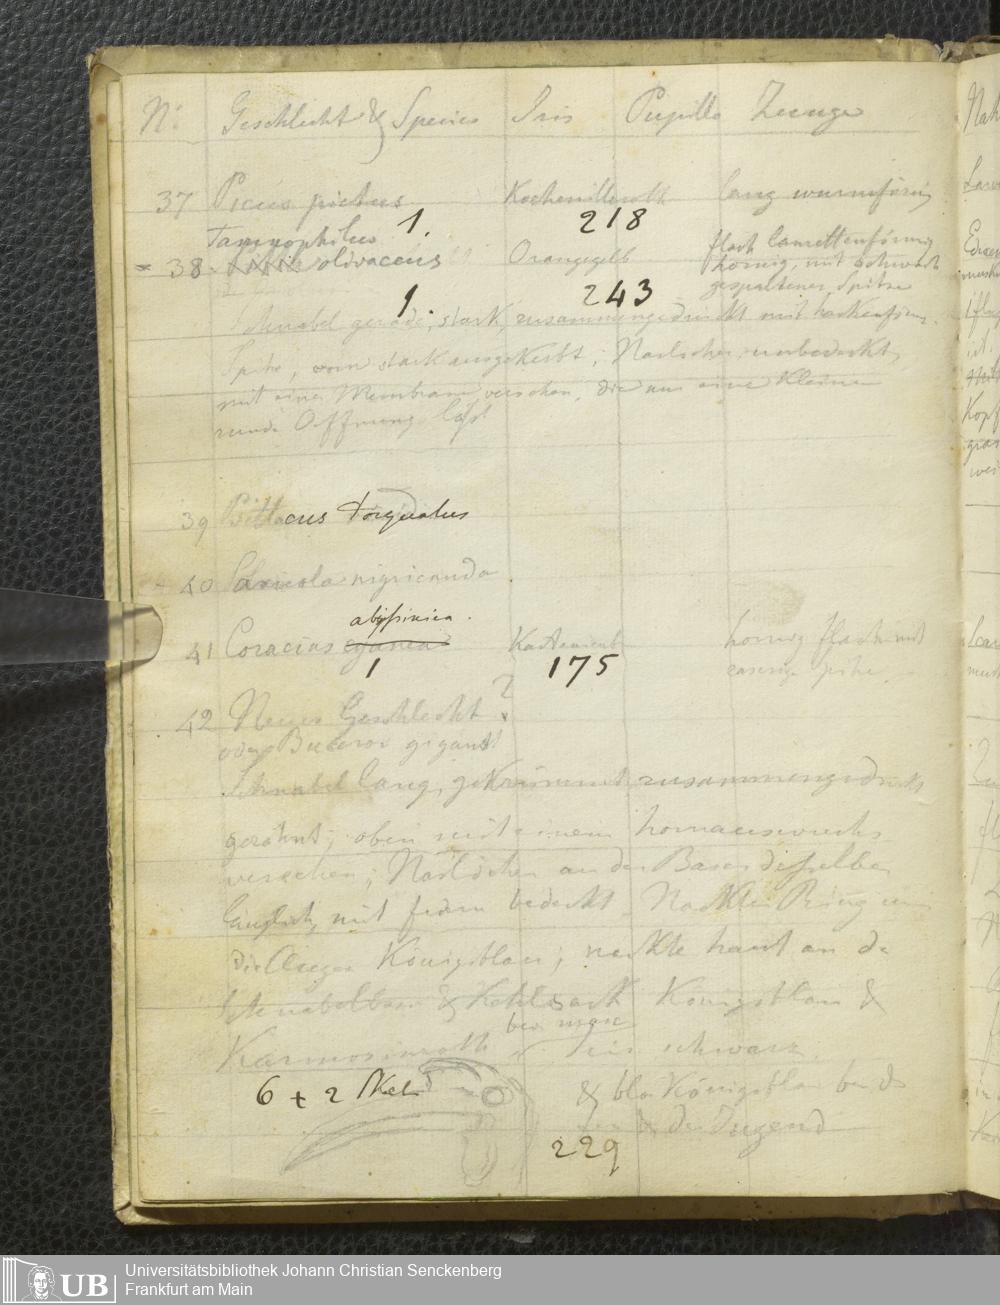 N: Geschlecht & Species Iris Pupille Zunge
37 Picus pictus Kochenilleroth lang wurmförmig
1. 218
Tamnophilus
38 olivaceus Orangegelb flach lanzettenförmig
hornig, mit schwach
gespaltener Spitze
1. 243
Schnabel gerade, stark, zusammengedrückt mit hackenförm.
Spitze, vorn stark ausgekerbt, Naslöcher unbedeckt,
mit einer Membrane versehen, die nur eine kleine
runde Oeffnung läßt
39 Psittacus torquatus
40 Saxicola nigricauda
abyssinica.
41 Coracias cyanea Kastanienb hornig flach mit
1 175 zaseriger Spitze.
42 Neues Geschlecht ?
oder Buceros gigant
Schnabel lang, gekrümmt, zusammengedrückt
gezähnt, oben mit einem hornauswuchs
versehen; Naslöcher an der Basis desselben
länglich, mit federn bedeckt. Nackter Ring um
die Augen Königsblau; nackte haut an der
Schnabelbase & Kehlsack Königsblau &
bei masc
Karmosinroth Iris schwarz
6 + 2 Skel & bla Königsblau bei d
der Jugend
229
Nah
Kopf
Universitätsbibliothek Johann Christian Senckenberg
Frankfurt am Main
UB